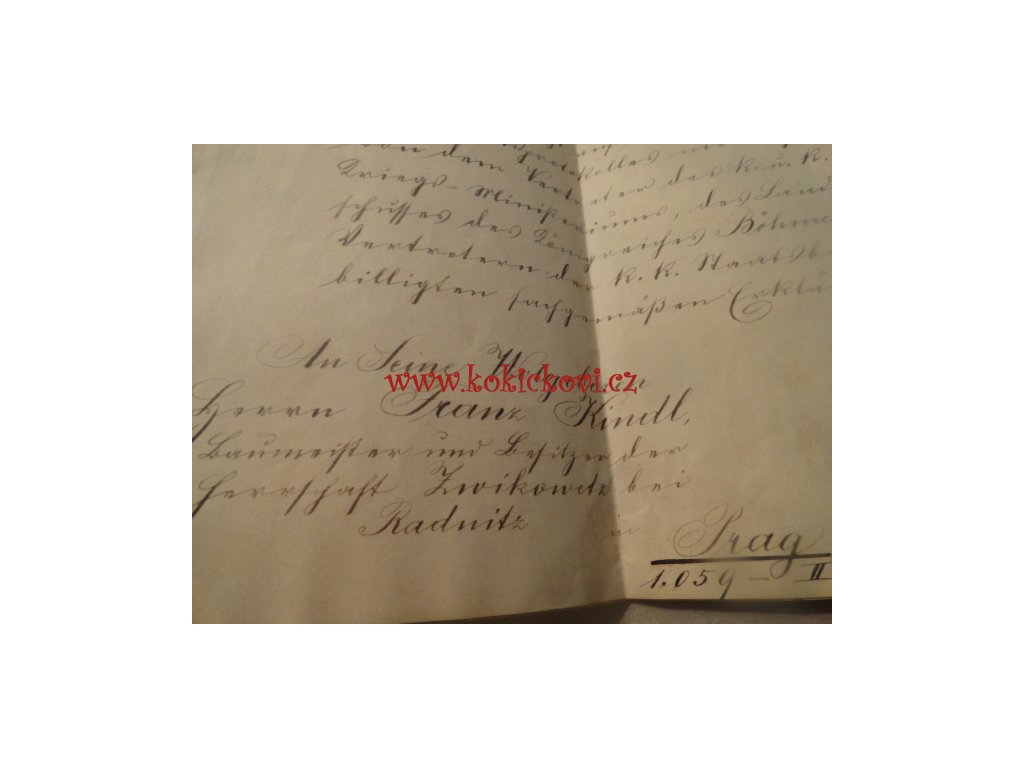 Protokolles
von dem Vertreter des k. u. k.
Kriegs-Ministeriums, des Land
schusses des Königreiches Böhme
Vertretern der k. k. Staatsb
billigten sachgemäßen Erklä
An Seine
www.kokickovi.cz
Herrn Franz Kindl,
Baumeister und Besitzer der
Herrschaft Zwikowetz bei
Radnitz
in Prag
1.059 – II